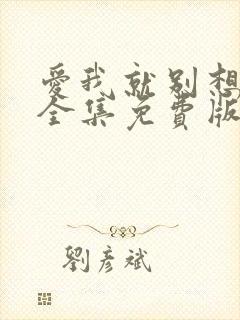 愛我就别想
全集免費版
劉彥斌